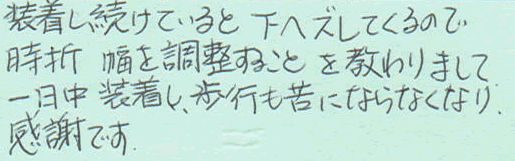 装着し続けていると 下へズレてくるので
時折 幅を調整すること を教わりまして
一日中 装着し、歩行も苦にならなくなり、
感謝です.